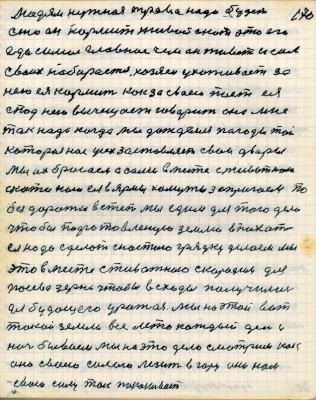 170
людям нужная трава надо будет
сто он кормит живой скот это его
еда самое главное чем он живет и сил
своих набирается, хозяин ухаживает за
нею ея кормит как за своею поет ея
спод нею вычищает говорит она мне
так надо когда мы дождемся погоды той
которая нас всех заставляет свои дворы
мы их бросаем а сами вместе с животною
скотиною ея в ярмы хомуты запрягаем по
без дорожью в степ мы едим для того дело
чтобы подготовленную землю вспахать
ея надо сделать сностою грядку делаем мы
это вместе с животною скородим для
посева зерна чтобы всходы получились
для будущего урожая. мы на этой вот
такой земли все лето каждый день и
ноч бываем мы на это дело смотрим как
оно своею силою лезит в гору оно нам
свою силу так показывает